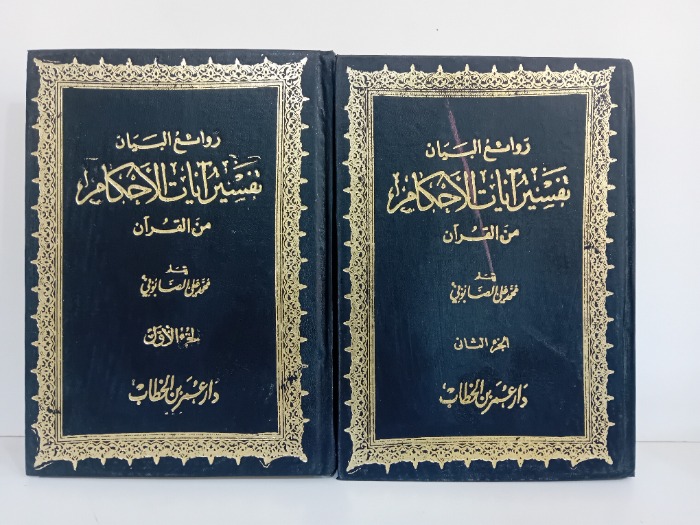 روائع البيان
تفسير آيات الأحكام
من القرآن
بقلم
محمد علي الصابوني
الجزء الأول
دار عمر بن الخطاب
روائع البيان
تفسير آيات الأحكام
من القرآن
بقلم
محمد علي الصابوني
الجزء الثاني
دار عمر بن الخطاب